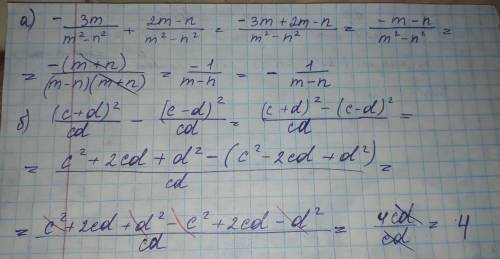 а) - 3m/(m²-n²) + (2m-n)/(m²-n²) = (-3m+2m-n)/(m²-n²) = (-m-n)/(m²-n²) =
= -(m+n)/((m-n)(m+n)) = -1/(m-n) = - 1/(m-n)
б) (c+d)²/cd - (c-d)²/cd = ((c+d)²-(c-d)²)/cd =
= (c²+2cd+d²-(c²-2cd+d²))/cd =
= (c²+2cd+d²-c²+2cd-d²)/cd = 4cd/cd = 4